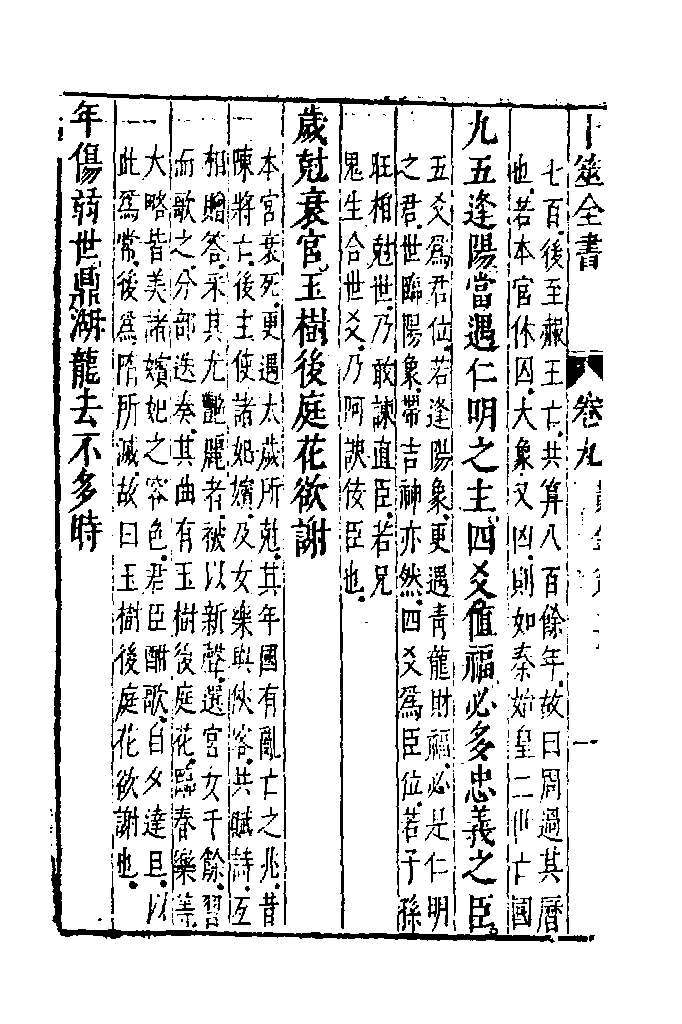 卜筮全書
卷九
七百後至赧王亡共算八百餘年故曰周過其曆
也若本官休囚大象又凶則如秦始皇二世亡國
九五逢陽當遇仁明之主四爻值福必多忠義之臣
五爻爲君位若逢陽象更遇青龍財福必是仁明
之君世臨陽象帶吉神亦然四爻爲臣位若子孫
旺相尅世乃敢諫直臣若兄
鬼生合世爻乃阿諛佞臣也
歲尅衰官玉樹後庭花欲謝
本宮衰死更遇太歲所尅其年國有亂亡之兆昔
陳將亡後主使諸妃嬪及女樂與俠客共賦詩互
相贈答采其尤艷麗者被以新聲選宮女千餘習
而歌之分部迭奏其曲有玉樹後庭花臨春樂等
大略皆美諸嬪妃之容色君臣酣歌自夕達旦以
此爲常後爲隋所滅故曰玉樹後庭花欲謝也
年傷弱世鼎湖龍去不多時